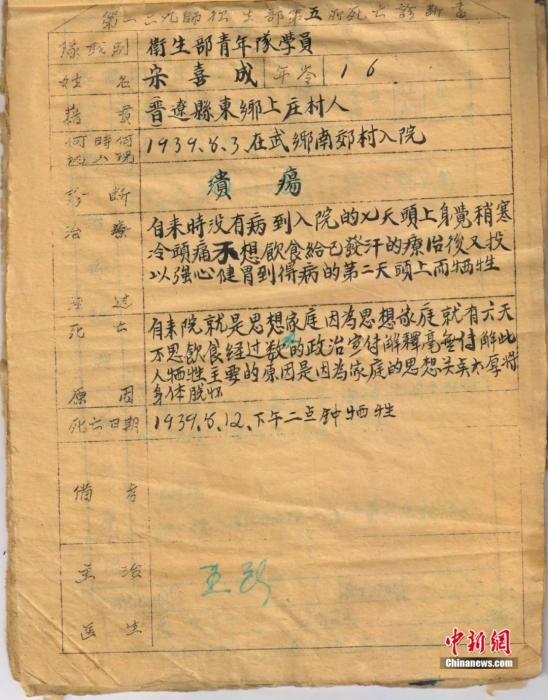 第一二九師衛生部第五所死亡診斷書
隊职别 衛生部青年隊學員
姓名 宋喜成 年令 16
籍貫 晋遼縣東鄉上庄村人
何時何 1939.6.3.在武鄉南郊村入院
診断 潰瘍
治療 自来時没有病到入院的七天頭上身覺稍寒
冷頭痛不想飲食給已發汗的療治後又投
以強心健胃到得病的第二天頭上而牺牲
经过
死亡 自来院就是思想家庭因為思想家庭就有六天
不思飲食经过數的政治宣付解釋毫無付解此
人牺牲主要的原因是因為家庭的思想关点太厚将
原因 身体脱怀
死亡日期 1939.6.12.下午二点钟牺牲
備考
主治
医生
中新网
Chinanews.com